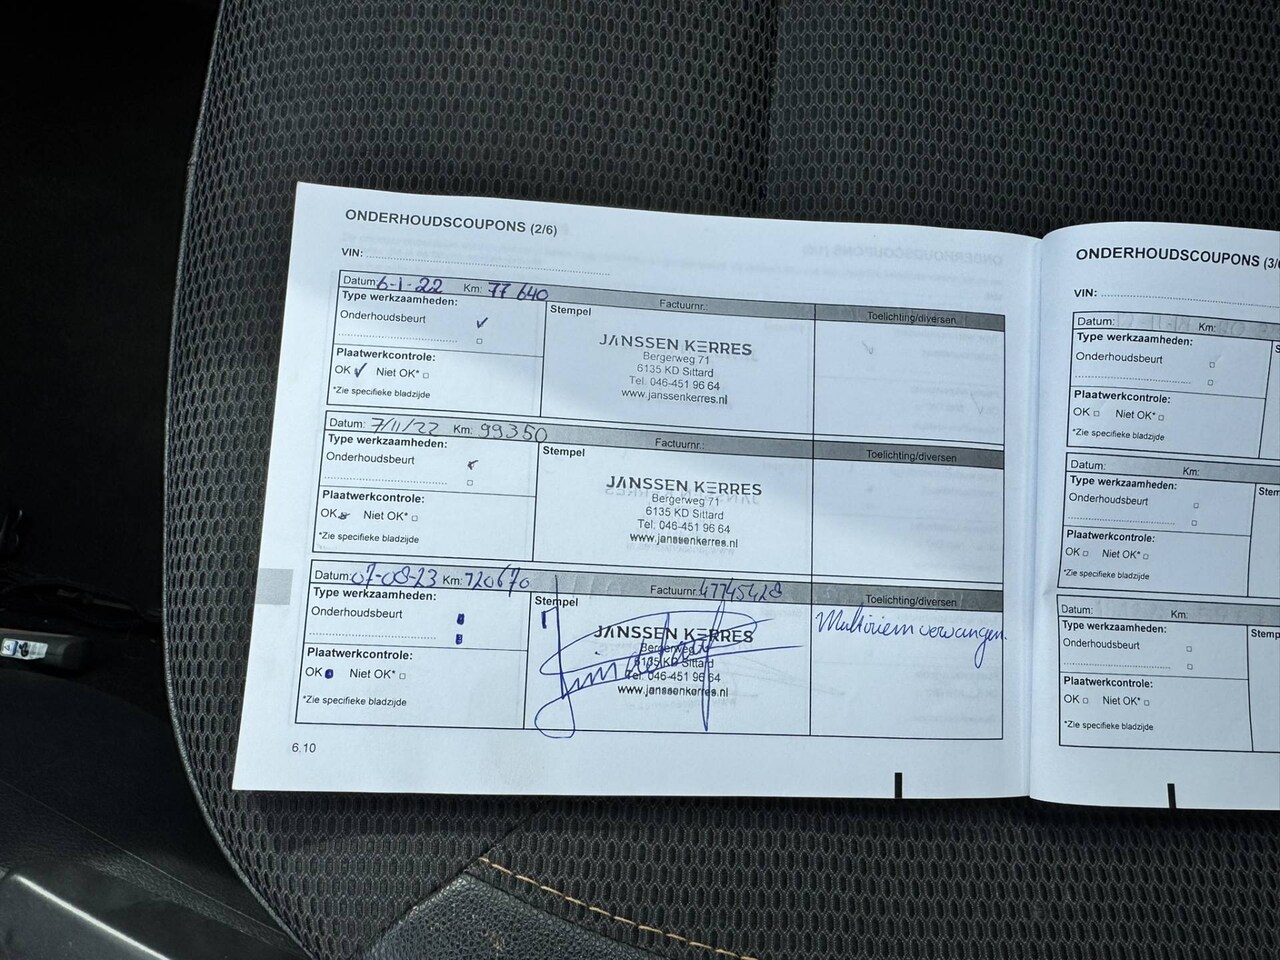 ONDERHOUDSCOUPONS (2/6)
VIN:
Datum: 6-1-22 Km: 77 640 Factuurnr.: Toelichting/diversen
Type werkzaamheden:
Stempel
Onderhoudsbeurt ✓
Plaatwerkcontrole:
OK ✓ Niet OK*
*Zie specifieke bladzijde
JANSSEN KERRES
Bergerweg 71
6135 KD Sittard
Tel. 046-451 96 64
www.janssenkerres.nl
Datum: 7/11/22 Km: 99350 Factuurnr.: Toelichting/diversen
Type werkzaamheden:
Stempel
Onderhoudsbeurt
Plaatwerkcontrole:
OK Niet OK*
*Zie specifieke bladzijde
JANSSEN KERRES
Bergerweg 71
6135 KD Sittard
Tel. 046-451 96 64
www.janssenkerres.nl
Datum: 07-08-23 Km: 120670 Factuurnr. 47745428 Toelichting/diversen
Type werkzaamheden:
Stempel
Onderhoudsbeurt
Plaatwerkcontrole:
OK Niet OK*
*Zie specifieke bladzijde
JANSSEN KERRES
Bergerweg 71
6135 KD Sittard
Tel. 046-451 96 64
www.janssenkerres.nl
Multiriem vervangen.
6.10
ONDERHOUDSCOUPONS (3/6
VIN:
Datum: Km:
Type werkzaamheden:
Onderhoudsbeurt
Plaatwerkcontrole:
OK Niet OK*
*Zie specifieke bladzijde
Datum: Km:
Type werkzaamheden:
Stem
Onderhoudsbeurt
Plaatwerkcontrole:
OK Niet OK*
*Zie specifieke bladzijde
Datum: Km:
Type werkzaamheden:
Stemp
Onderhoudsbeurt
Plaatwerkcontrole:
OK Niet OK*
*Zie specifieke bladzijde